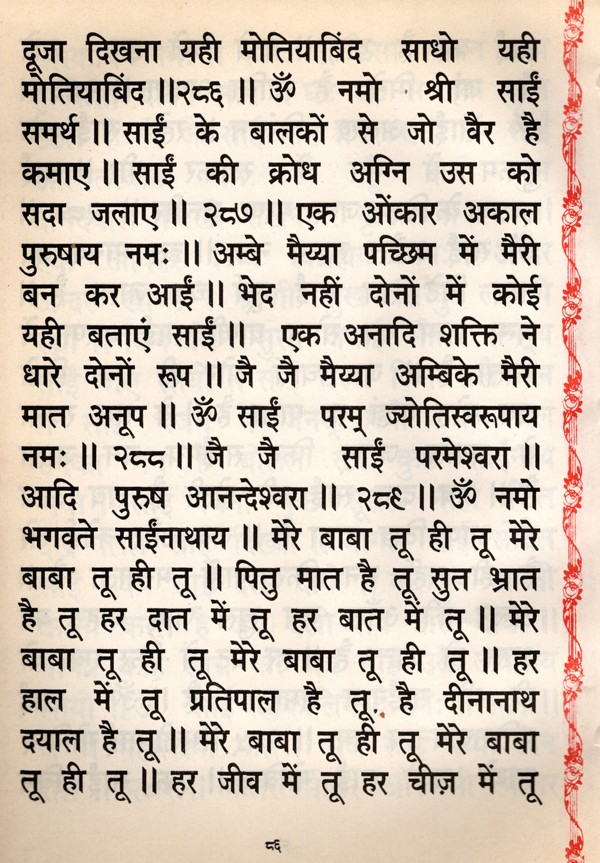 दूजा दिखना यही मोतियाबिंद साधो यही
मोतियाबिंद ।।२८६ ।। ॐ नमो श्री साईं
समर्थ ।। साईं के बालकों से जो वैर है
कमाए ।। साईं की क्रोध अग्नि उस को
सदा जलाए ।। २८७ ।। एक ओंकार अकाल
पुरुषाय नमः ।। अम्बे मैय्या पच्छिम में मैरी
बन कर आईं ।। भेद नहीं दोनों में कोई
यही बताएं साईं ।। एक अनादि शक्ति ने
धारे दोनों रूप ।। जै जै मैय्या अम्बिके मैरी
मात अनूप ।। ॐ साईं परम् ज्योतिस्वरूपाय
नमः ।। २८८ ।। जै जै साईं परमेश्वरा ।।
आदि पुरुष आनन्देश्वरा ।। २८९ ।। ॐ नमो
भगवते साईंनाथाय ।। मेरे बाबा तू ही तू मेरे
बाबा तू ही तू ।। पितु मात है तू सुत भ्रात
है तू हर दात में तू हर बात में तू ।। मेरे
बाबा तू ही तू मेरे बाबा तू ही तू ।। हर
हाल में तू प्रतिपाल है तू है दीनानाथ
दयाल है तू ।। मेरे बाबा तू ही तू मेरे बाबा
तू ही तू ।। हर जीव में तू हर चीज़ में तू
८६